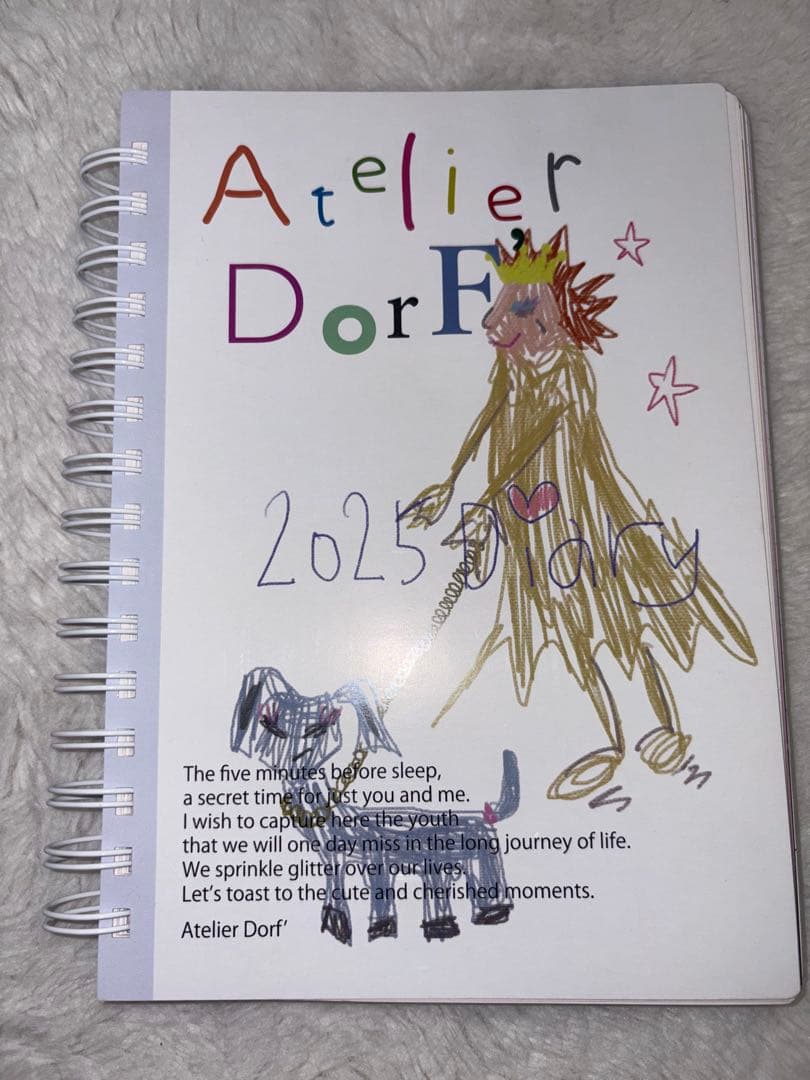 Atelier
DorF'
2025 Diary
The five minutes before sleep,
a secret time for just you and me.
I wish to capture here the youth
that we will one day miss in the long journey of life.
We sprinkle glitter over our lives.
Let's toast to the cute and cherished moments.
Atelier Dorf'